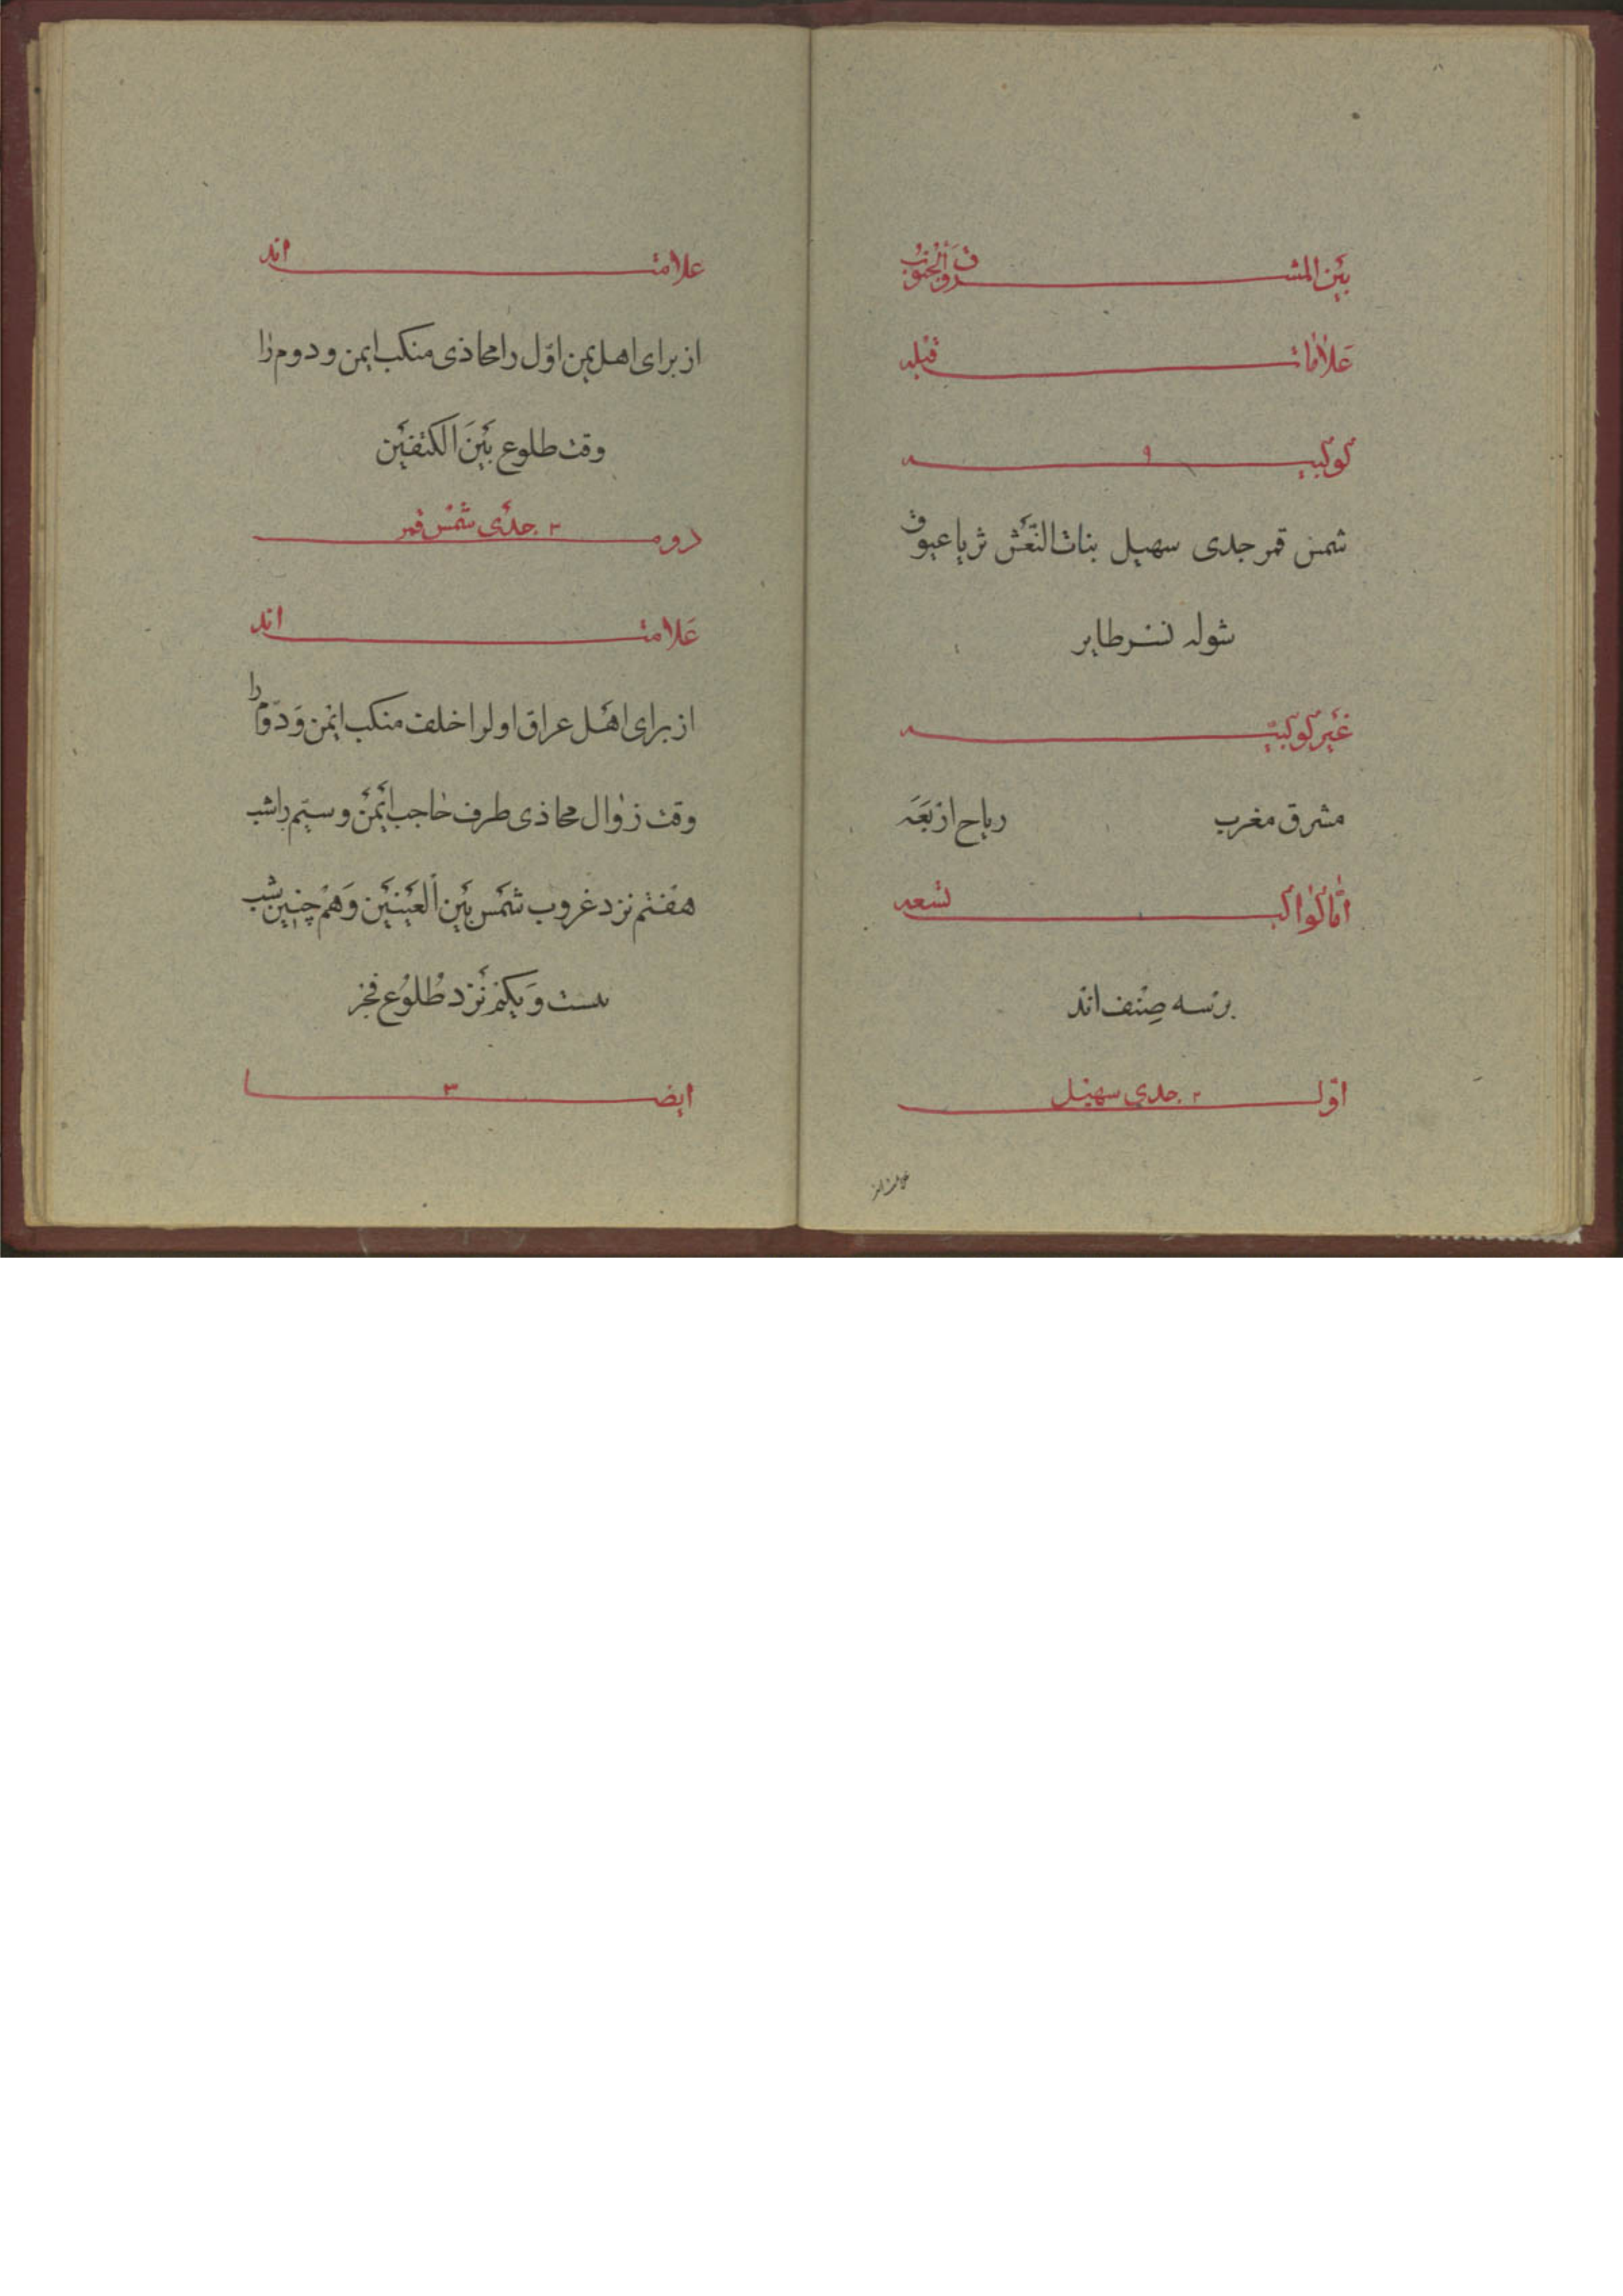 بَیْن المشرق وَالْجَنُوبْ
عَلامات قبله
کوکبیه ۹
شمس قمر جدی سهیل بنات النَّعْش ثریا عیوق
شوله نسر طایر
غَیْر کوکبیّه
مشرق مغرب ریاح اربَعَه
امّا کواکب تسعه
بر سه صِنْف اند
اوّل ۲ جدی سهیل
علامت اند
از برای اهل یمن اوّل را محاذی منکب ایمن و دوم را
وقت طلوع بَیْنَ الکتفَیْن
دوم ۳ جدْی شمْس قمر
عَلامت اند
از برای اهْل عراق اول را خلف منکب ایْمن وَ دوّم را
وقت زوال محاذی طرف حاجب ایْمَنْ و سیّم را شب
هفْتم نزد غروب شَمْس بَیْن الْعَیْنَیْن وَ همْ چنین شب
بیست وَ یکم نَزْد طُلُوْع فجْر
ایضا ۳